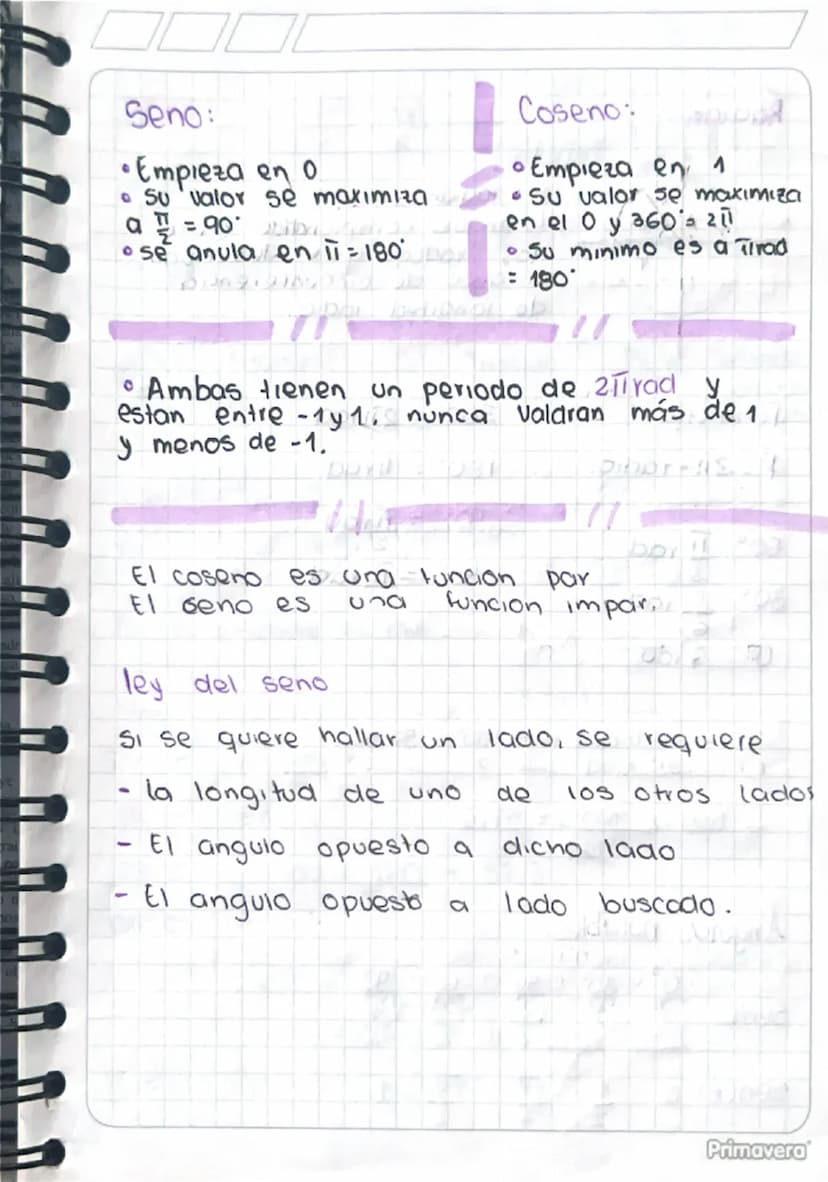 Seno:
• Empieza en 0
• Su valor se maximiza
a π/2 = 90°
• se anula en π = 180°
Coseno:
• Empieza en 1
• Su valor se maximiza
en el 0 y 360° = 2π
• Su minimo es a πrad
= 180°
• Ambas tienen un periodo de 2πrad y
estan entre -1 y 1, nunca valdran más de 1
y menos de -1.
El coseno es una funcion par
El seno es una funcion impar.
ley del seno
si se quiere hallar un lado, se requiere
- la longitud de uno de los otros lados
- El angulo opuesto a dicho lado
- El angulo opuesto a lado buscado.
Primavera